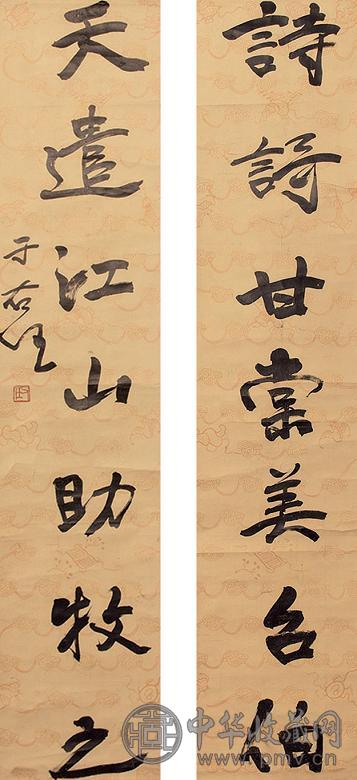 詩誇甘棠美召伯
天遣江山助牧之
于右任
中华收藏网
www.pmv.cn